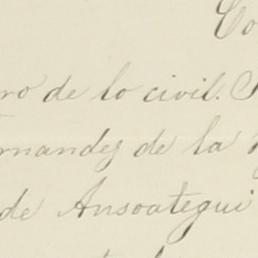 Co
ro de lo civil. S
rnandez de la
de Ansoategui